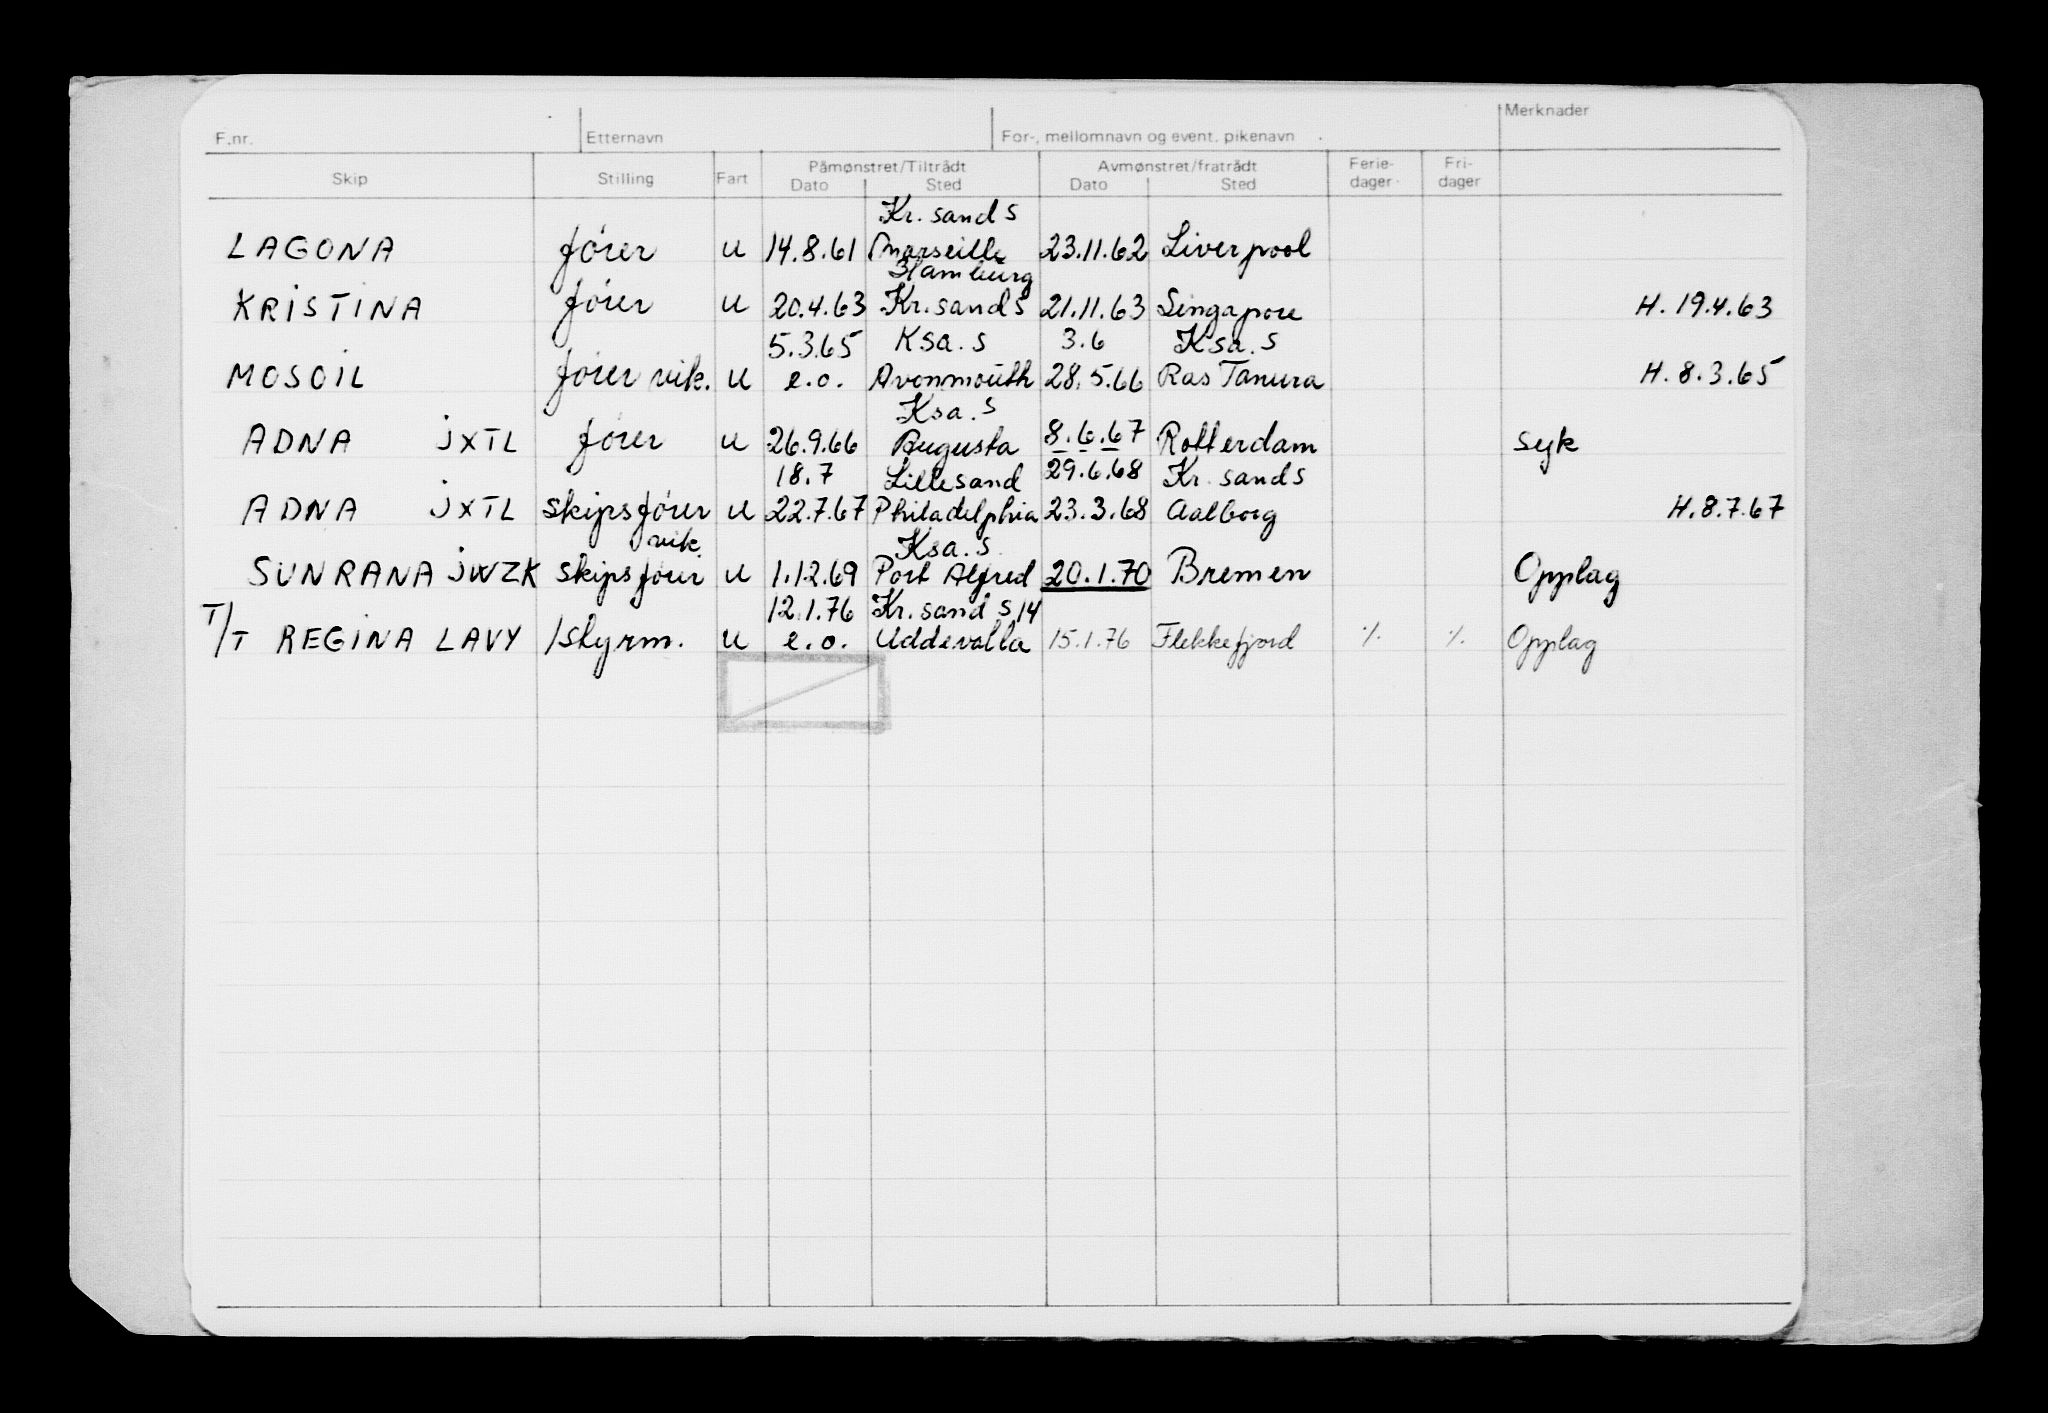 F.nr. Etternavn For-, mellomnavn og event. pikenavn Merknader
Skip Stilling Fart Påmønstret/Tiltrådt Avmønstret/fratrådt Ferie-dager Fri-dager
Dato Sted Dato Sted
Kr. sand S
LAGONA fører u 14.8.61 Marseille 23.11.62 Liverpool
Hamburg
KRISTINA fører u 20.4.63 Kr. sand S 21.11.63 Singapore H. 19.4.63
5.3.65 Ksa. S 3.6 Ksa. S
MOSOIL fører vik. u e.o. Avonmouth 28.5.66 Ras Tanura H. 8.3.65
Ksa. S
ADNA JXTL fører u 26.9.66 Augusta 8.6.67 Rotterdam syk
18.7 Lillesand 29.6.68 Kr. sand S
ADNA JXTL skipsfører u 22.7.67 Philadelphia 23.3.68 Aalborg H. 8.7.67
vik. Ksa. S
SUNRANA JWZK skipsfører u 1.12.69 Port Alfred 20.1.70 Bremen Opplag
12.1.76 Kr. sand S 14
T/T REGINA LAVY 1styrm. u e.o. Uddevalla 15.1.76 Flekkefjord ٪ ٪ Opplag